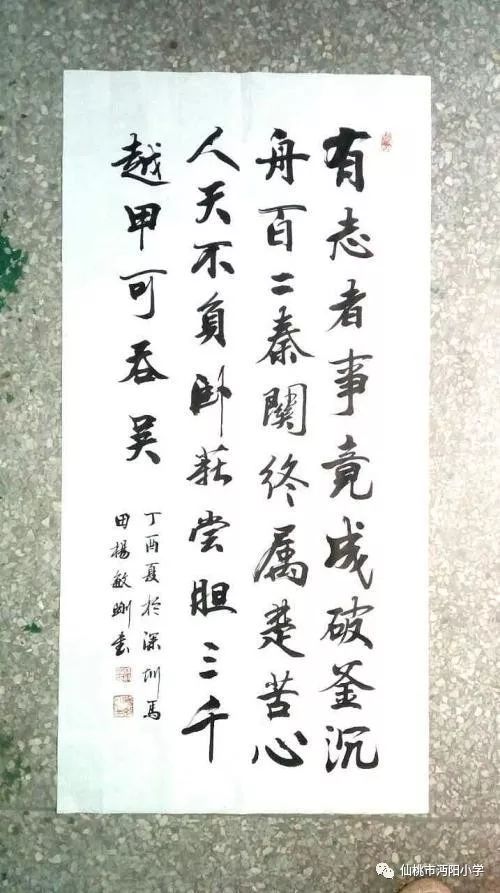 有志者事竟成破釜沉
舟百二秦關终属楚苦心
人天不負卧薪尝胆三千
越甲可吞吴
丁酉夏於深圳馬
田楊敏刚書
仙桃市沔阳小学